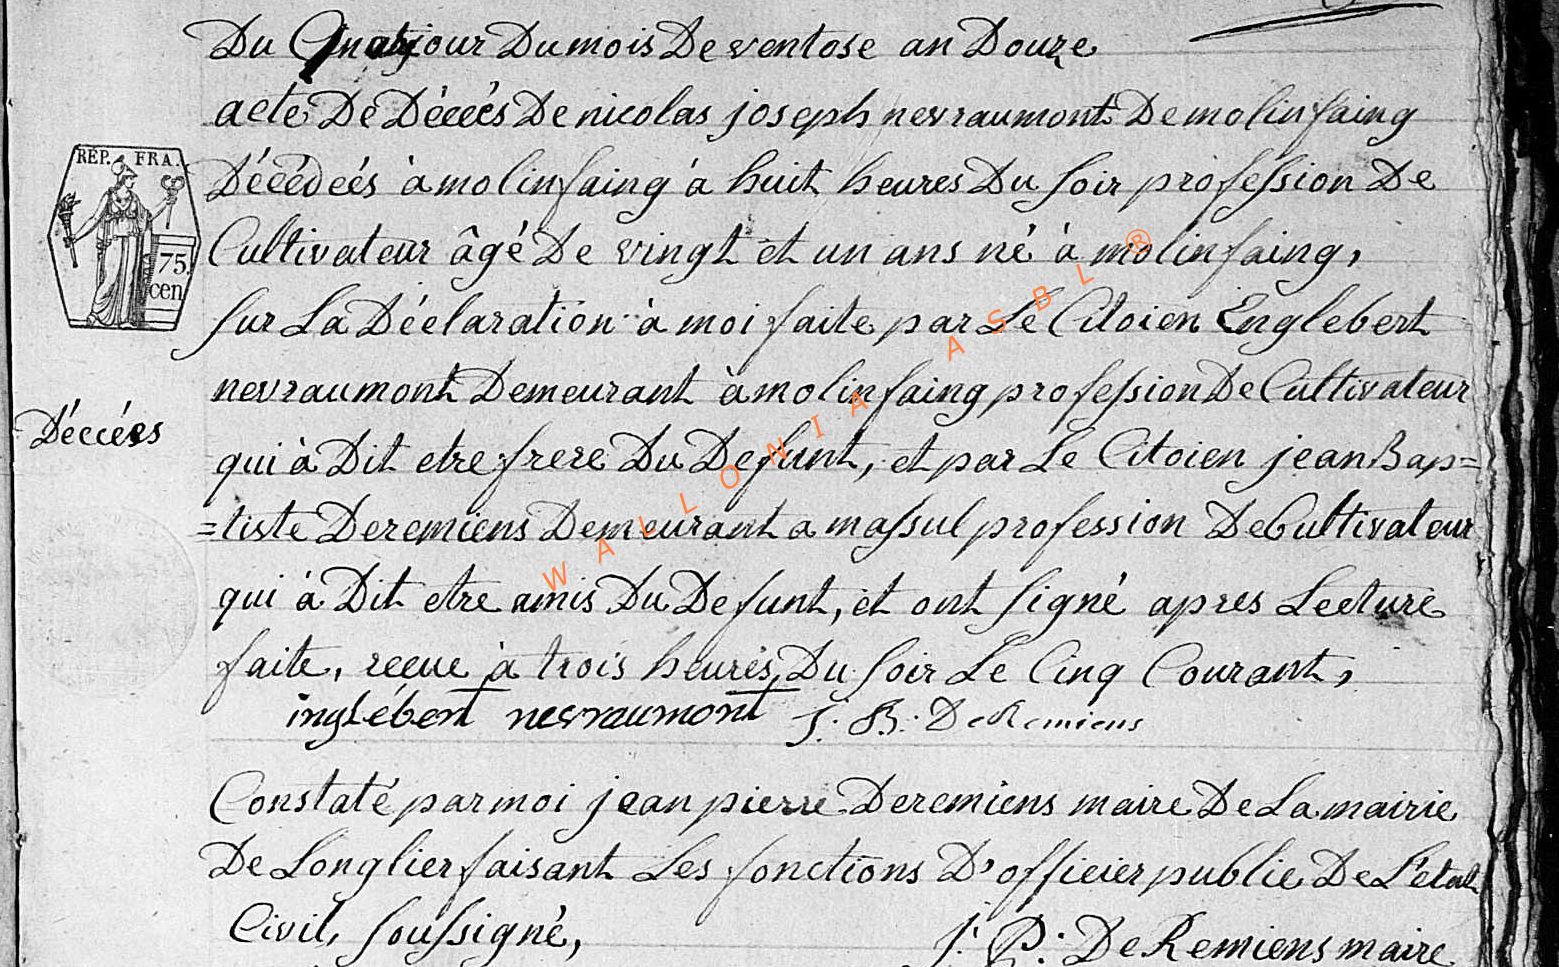 Du Quatrjour Du mois De ventose an Douze
acte De Décéés De nicolas joseph nevraumont De molinfaing
REP. FRA.
Décédéés à molinfaing à huit heures Du soir profession De
Cultivateur âgé De vingt et un ans né à molinfaing,
75
cen
sur La Déclaration à moi faite par Le Citoien Englebert
nevraumont Demeurant à molinfaing profession De Cultivateur
Décéés
qui à Dit etre frere Du Defunt, et par Le Citoien jean Bap=
=tiste Deremiens Demeurant a massul profession De Cultivateur
qui à Dit etre amis Du Defunt, et ont signé apres Lecture
faite, recue à trois heures Du soir Le Cinq Courant,
inglébert nevraumont J: B: DeRemiens
Constaté par moi jean pierre Deremiens maire De La mairie
De Longlier faisant Les fonctions D'officier public De L'état
Civil, soussigné,
J: P: DeRemiens maire
WALLONIA ASBL ®